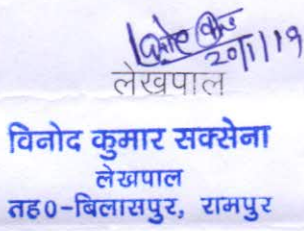 20/1/19
लेखपाल
विनोद कुमार सक्सेना
लेखपाल
तह०-बिलासपुर, रामपुर